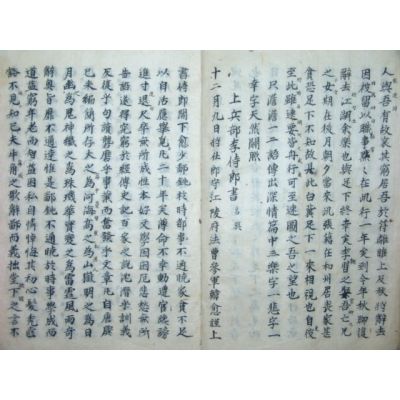 人與吾有故哀其窮居吾於符離睢上及秋將辭去
因被留以職事默默在此行一年矣到今年秋聊復
辭去江湖余樂也與足下終幸矣李習之娶吾亡兄
之女期在後月朝夕當來此張籍在和州居喪家甚
貧恐足下不知故具此白冀足下一來相視也自彼
至此雖遠要皆舟行可至速圖之吾之望也
只澹澹一二語傳出深情篇中三樂字一悲字一
幸字天然關照
上兵部李侍郎書
十二月九日將仕郎守江陵府法曹參軍韓愈謹上
書侍郎閣下愈少鄙鈍於時都事不通曉家貧不足
以自活應舉覓官凡二十年矣薄命不幸動遭讒謗
進寸退尺卒無所成性本好文學因困厄悲愁無所
告語遂得究窮於經傳史記百家之說沈潛乎訓義
反復乎句讀礱磨乎事業而奮發乎文章凡自唐虞
已來編簡所存大之為河海高之為山嶽明之為日
月幽之為鬼神纖之為珠璣華實變之為雷霆風雨奇
辭奧旨靡不通達惟是鄙鈍不通曉於時事學成而
道益窮年老而智益困私自憐悼悔其初心髮禿齒
豁不見知己夫牛角之歌辭鄙而義拙堂下之言不